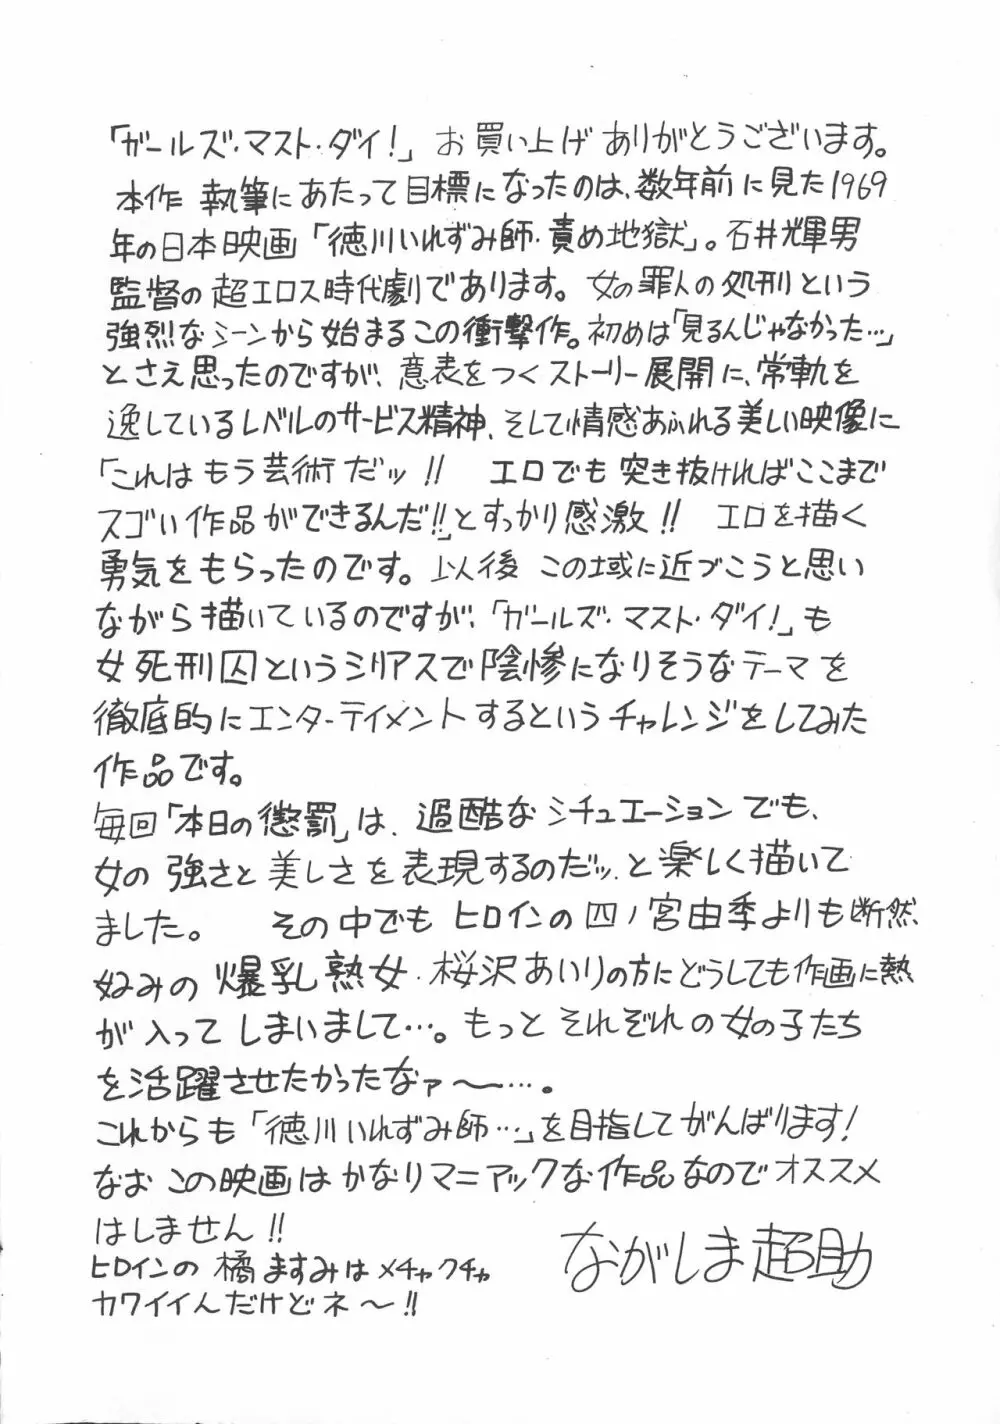 「ガールズ・マスト・ダイ!」お買い上げありがとうございます。
本作 執筆にあたって目標になったのは、数年前に見た1969
年の日本映画「徳川いれずみ師・責め地獄」。石井輝男
監督の超エロス時代劇であります。女の罪人の処刑という
強烈なシーンから始まるこの衝撃作。初めは「見るんじゃなかった…」
とさえ思ったのですが、意表をつくストーリー展開に、常軌を
逸しているレベルのサービス精神、そして情感あふれる美しい映像に
「これはもう芸術だッ!! エロでも突き抜ければここまで
スゴい作品ができるんだ!!」とすっかり感激!! エロを描く
勇気をもらったのです。以後 この域に近づこうと思い
ながら描いているのですが、「ガールズ・マスト・ダイ!」も
女死刑囚というシリアスで陰惨になりそうなテーマを
徹底的にエンターテイメントするというチャレンジをしてみた
作品です。
毎回「本日の懲罰」は、過酷なシチュエーションでも、
女の強さと美しさを表現するのだッ、と楽しく描いて
ました。 その中でもヒロインの四ノ宮由季よりも断然、
好みの爆乳熟女・桜沢あいりの方にどうしても作画に熱
が入ってしまいまして…。もっとそれぞれの女の子たち
を活躍させたかったなァ〜…。
これからも「徳川いれずみ師…」を目指してがんばります!
なおこの映画はかなりマニアックな作品なのでオススメ
はしません!!
ヒロインの橘ますみはメチャクチャ
カワイイんだけどネ〜!!
ながしま超助